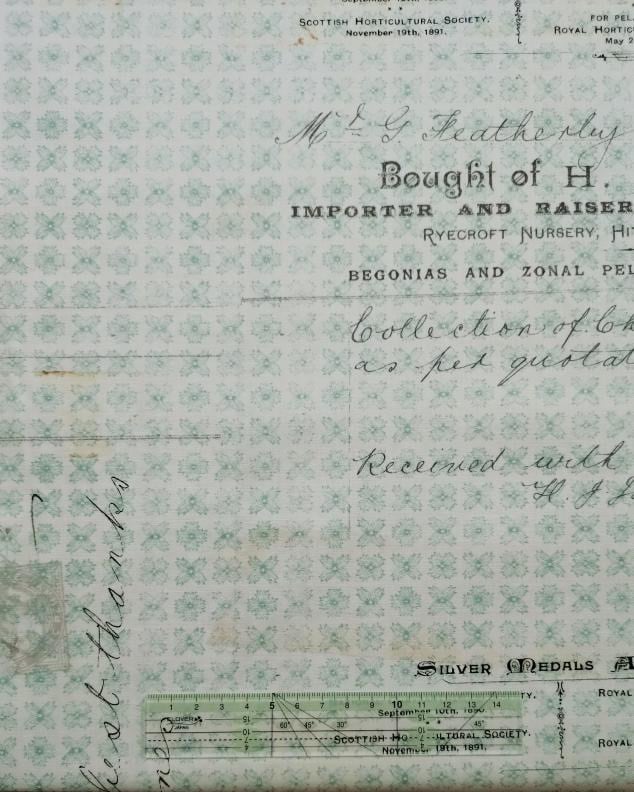 SCOTTISH HORTICULTURAL SOCIETY.
November 19th, 1891.
FOR PEL
ROYAL HORTIC
May 2
Mr G. Featherby
Bought of H.
IMPORTER AND RAISER
RYECROFT NURSERY, HIT
BEGONIAS AND ZONAL PEL
Collection of Ch
as per quotat
Received with
H. J. J
Best thanks
SILVER MEDALS A
TY.
ROYAL
1 2 3 4 5 6 7 8 9 10 11 12 13 14
September 10th, 1890.
CLOVER
JAPAN
60° 45° 30°
45°
SCOTTISH HO ULTURAL SOCIETY.
November 19th, 1891.
ROYAL